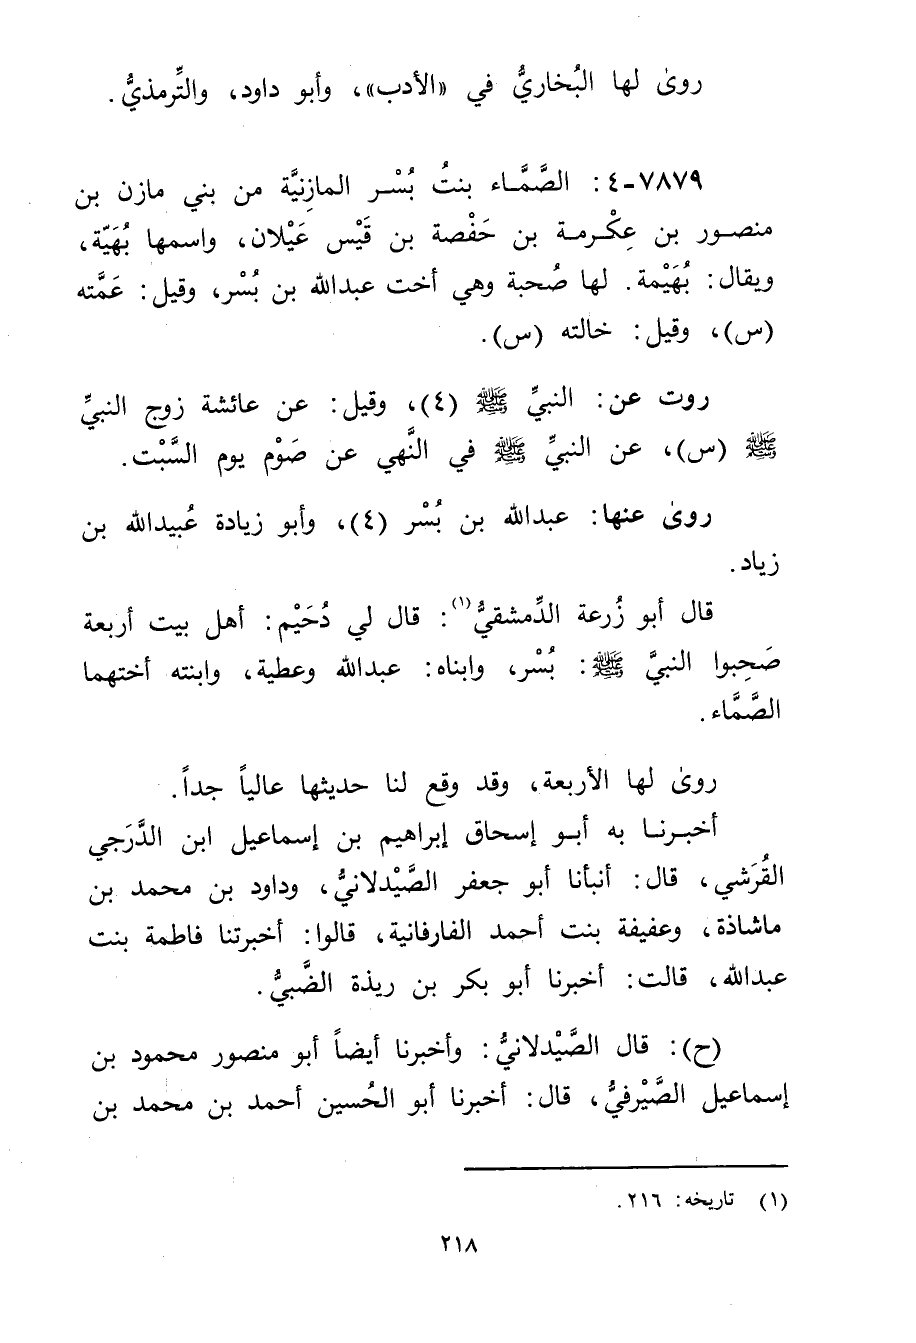 روىٰ لها البُخاريُّ في «الأدب»، وأبو داود، والتِّرمذيُّ.
٧٨٧٩-٤: الصَّمَّاء بنتُ بُسْر المازِنيَّة من بني مازن بن
منصور بن عِكْرمة بن حَفْصة بن قَيْس عَيْلان، واسمها بُهَيّة،
ويقال: بُهَيْمة. لها صُحبة وهي أخت عبدالله بن بُسْر، وقيل: عَمَّته
(س)، وقيل: خالته (س).
روت عن: النبيِّ ﷺ (٤)، وقيل: عن عائشة زوج النبيِّ
ﷺ (س)، عن النبيِّ ﷺ في النَّهي عن صَوْم يوم السَّبْت.
روىٰ عنها: عبدالله بن بُسْر (٤)، وأبو زيادة عُبيدالله بن
زياد.
قال أبو زُرعة الدِّمشقيُّ(١): قال لي دُحَيْم: أهل بيت أربعة
صَحِبوا النبيَّ ﷺ: بُسْر، وابناه: عبدالله وعطية، وابنته أختهما
الصَّمَّاء.
روىٰ لها الأربعة، وقد وقع لنا حديثها عالياً جداً.
أخبرنا به أبو إسحاق إبراهيم بن إسماعيل ابن الدَّرَجي
القُرَشي، قال: أنبأنا أبو جعفر الصَّيْدلانيُّ، وداود بن محمد بن
ماشاذة، وعفيفة بنت أحمد الفارفانية، قالوا: أخبرتنا فاطمة بنت
عبدالله، قالت: أخبرنا أبو بكر بن ريذة الضَّبيُّ.
(ح): قال الصَّيْدلانيُّ: وأخبرنا أيضاً أبو منصور محمود بن
إسماعيل الصَّيْرفيُّ، قال: أخبرنا أبو الحُسين أحمد بن محمد بن
(١) تاريخه: ٢١٦.
٢١٨